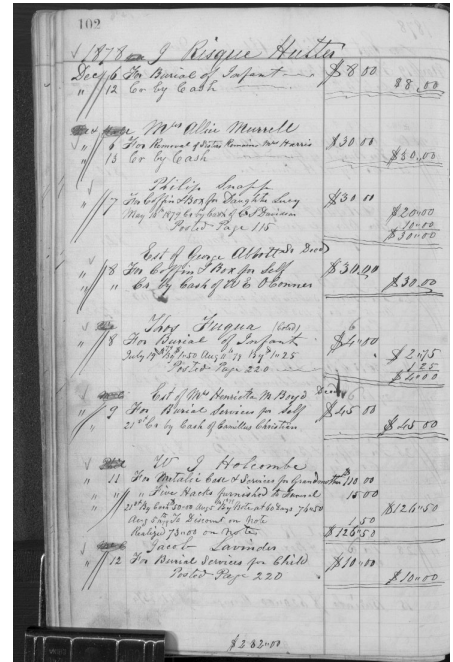 102
1878 J Risque Hutter
Decr 6 For Burial of Infant $8 00
" 12 Cr by Cash $8.00
Mrs Allie Murrell
" 6 For Removal of Sisters Remains Mrs Harris $30.00
" 13 Cr by Cash $30.00
Philip Snapp
" 7 For Coffin & Box for Daughter Lucy $30 00
May 1879 Cr by Cash of Davidson $20.00
Posted Page 115 10.00
$30.00
Est of George Abbott Sr Decd
" 8 For Coffin & Box for Self $30.00
" " Cr by Cash of W E O'Conner $30.00
Thos Fuqua (Cold)
" 8 For Burial of Infant $4.00
July 19th 1.50 Aug 1.25 $2.75
Posted Page 220 1 25
$4.00
Est of Mrs Henrietta M Boyd Decd
" 9 For Burial Services for Self $45 00
21st Cr by Cash of Camillus Christian $45.00
W J Holcombe
" 11 For Metalic Case & Services for Grandmother 110.00
" " Five Hacks furnished to Funeral 15 00
21st By Cash 50.00 By Note at 60 days 76.50 $126.50
To Discount on Note 1.50
Realized 75.00 on Note $126.50
Jacob Lavinder
" 12 For Burial Services for Child $10.00
Posted Page 220 $10.00
$282.00